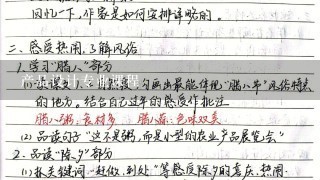 回忆一下，作家是如何安排详略的。
二、感受热闹，了解风俗
1. 学习“腊八”部分
(1) 勾画出最能体现“腊八节”风俗特点
的地方。结合自己过年的感受作批注
腊八粥：食材多 腊八蒜：色味双美
(2) 品读句子“这不是粥，而是小型的农业产品展览会”
2. 品读“除夕”部分
(1) 抓关键词“赶做，到处”等感受除夕的喜庆、热闹
产品设计专业课程